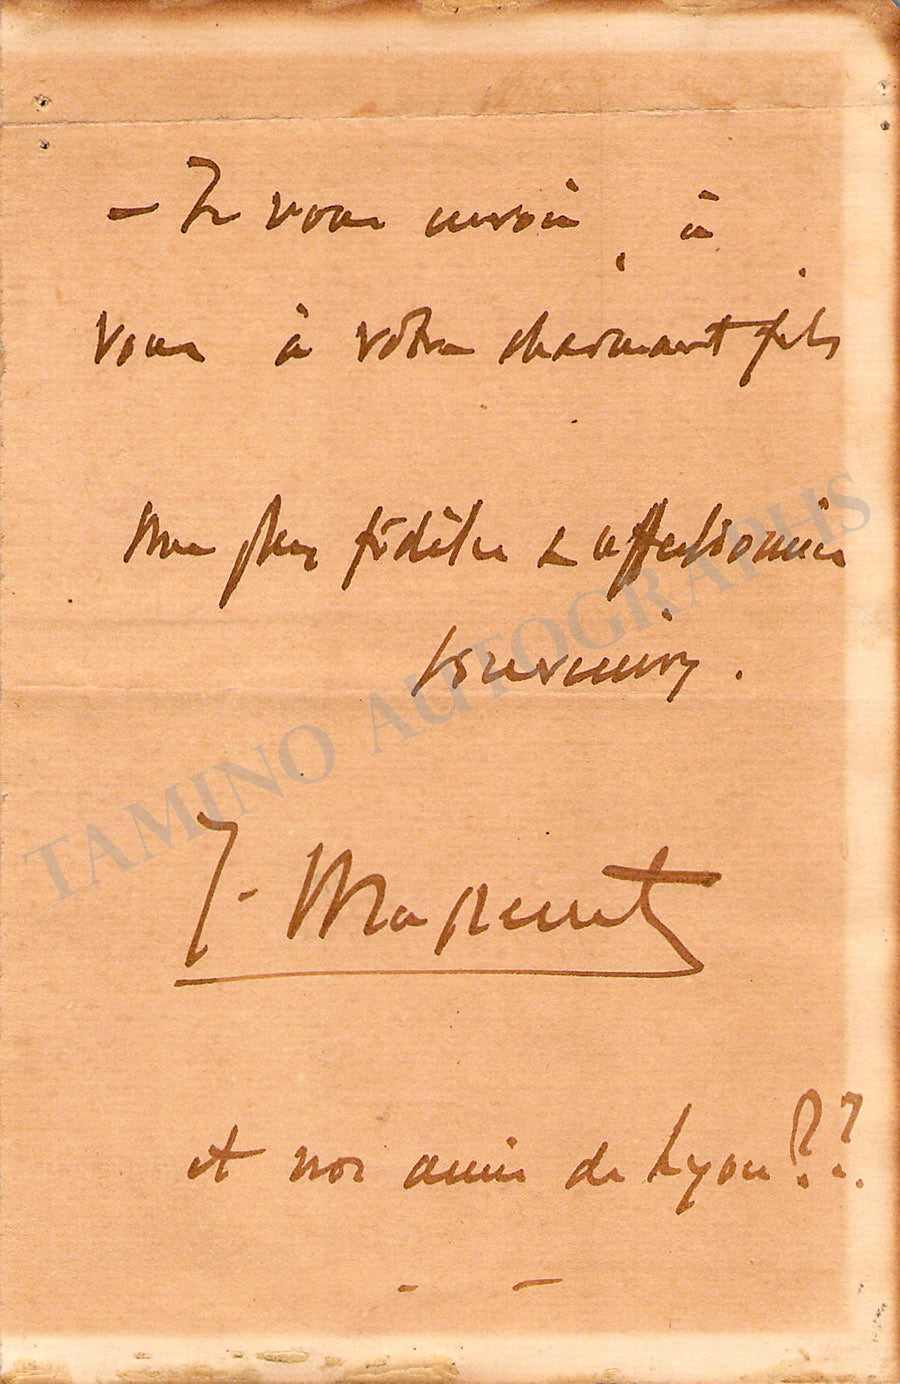 — Je vous envoie, à
vous à votre charmant fils
mes plus fidèles & affectionnés
souvenirs.
J. Massenet
et nos amis de Lyon ??
TAMINO AUTOGRAPHS